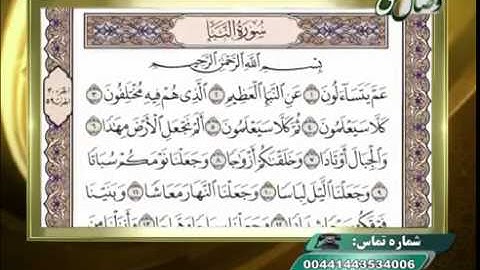 وصال
سُورَةُ النَّبَإِ
بِسْمِ اللَّهِ الرَّحْمَٰنِ الرَّحِيمِ
عَمَّ يَتَسَاءَلُونَ ١ عَنِ النَّبَإِ الْعَظِيمِ ٢ الَّذِي هُمْ فِيهِ مُخْتَلِفُونَ ٣
كَلَّا سَيَعْلَمُونَ ٤ ثُمَّ كَلَّا سَيَعْلَمُونَ ٥ أَلَمْ نَجْعَلِ الْأَرْضَ مِهَادًا ٦
وَالْجِبَالَ أَوْتَادًا ٧ وَخَلَقْنَاكُمْ أَزْوَاجًا ٨ وَجَعَلْنَا نَوْمَكُمْ سُبَاتًا
٩ وَجَعَلْنَا اللَّيْلَ لِبَاسًا ١٠ وَجَعَلْنَا النَّهَارَ مَعَاشًا ١١ وَبَنَيْنَا
فَوْقَكُمْ سَبْعًا شِدَادًا ١٢ وَجَعَلْنَا سِرَاجًا وَهَّاجًا ١٣ وَأَنزَلْنَا مِنَ
شماره تماس:
00441443534006